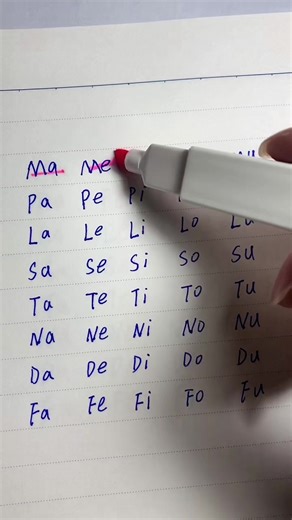 Ma Me
Pa Pe Pi
La Le Li Lo Lu
Sa Se Si So Su
Ta Te Ti To Tu
Na Ne Ni No Nu
Da De Di Do Du
Fa Fe Fi Fo Fu